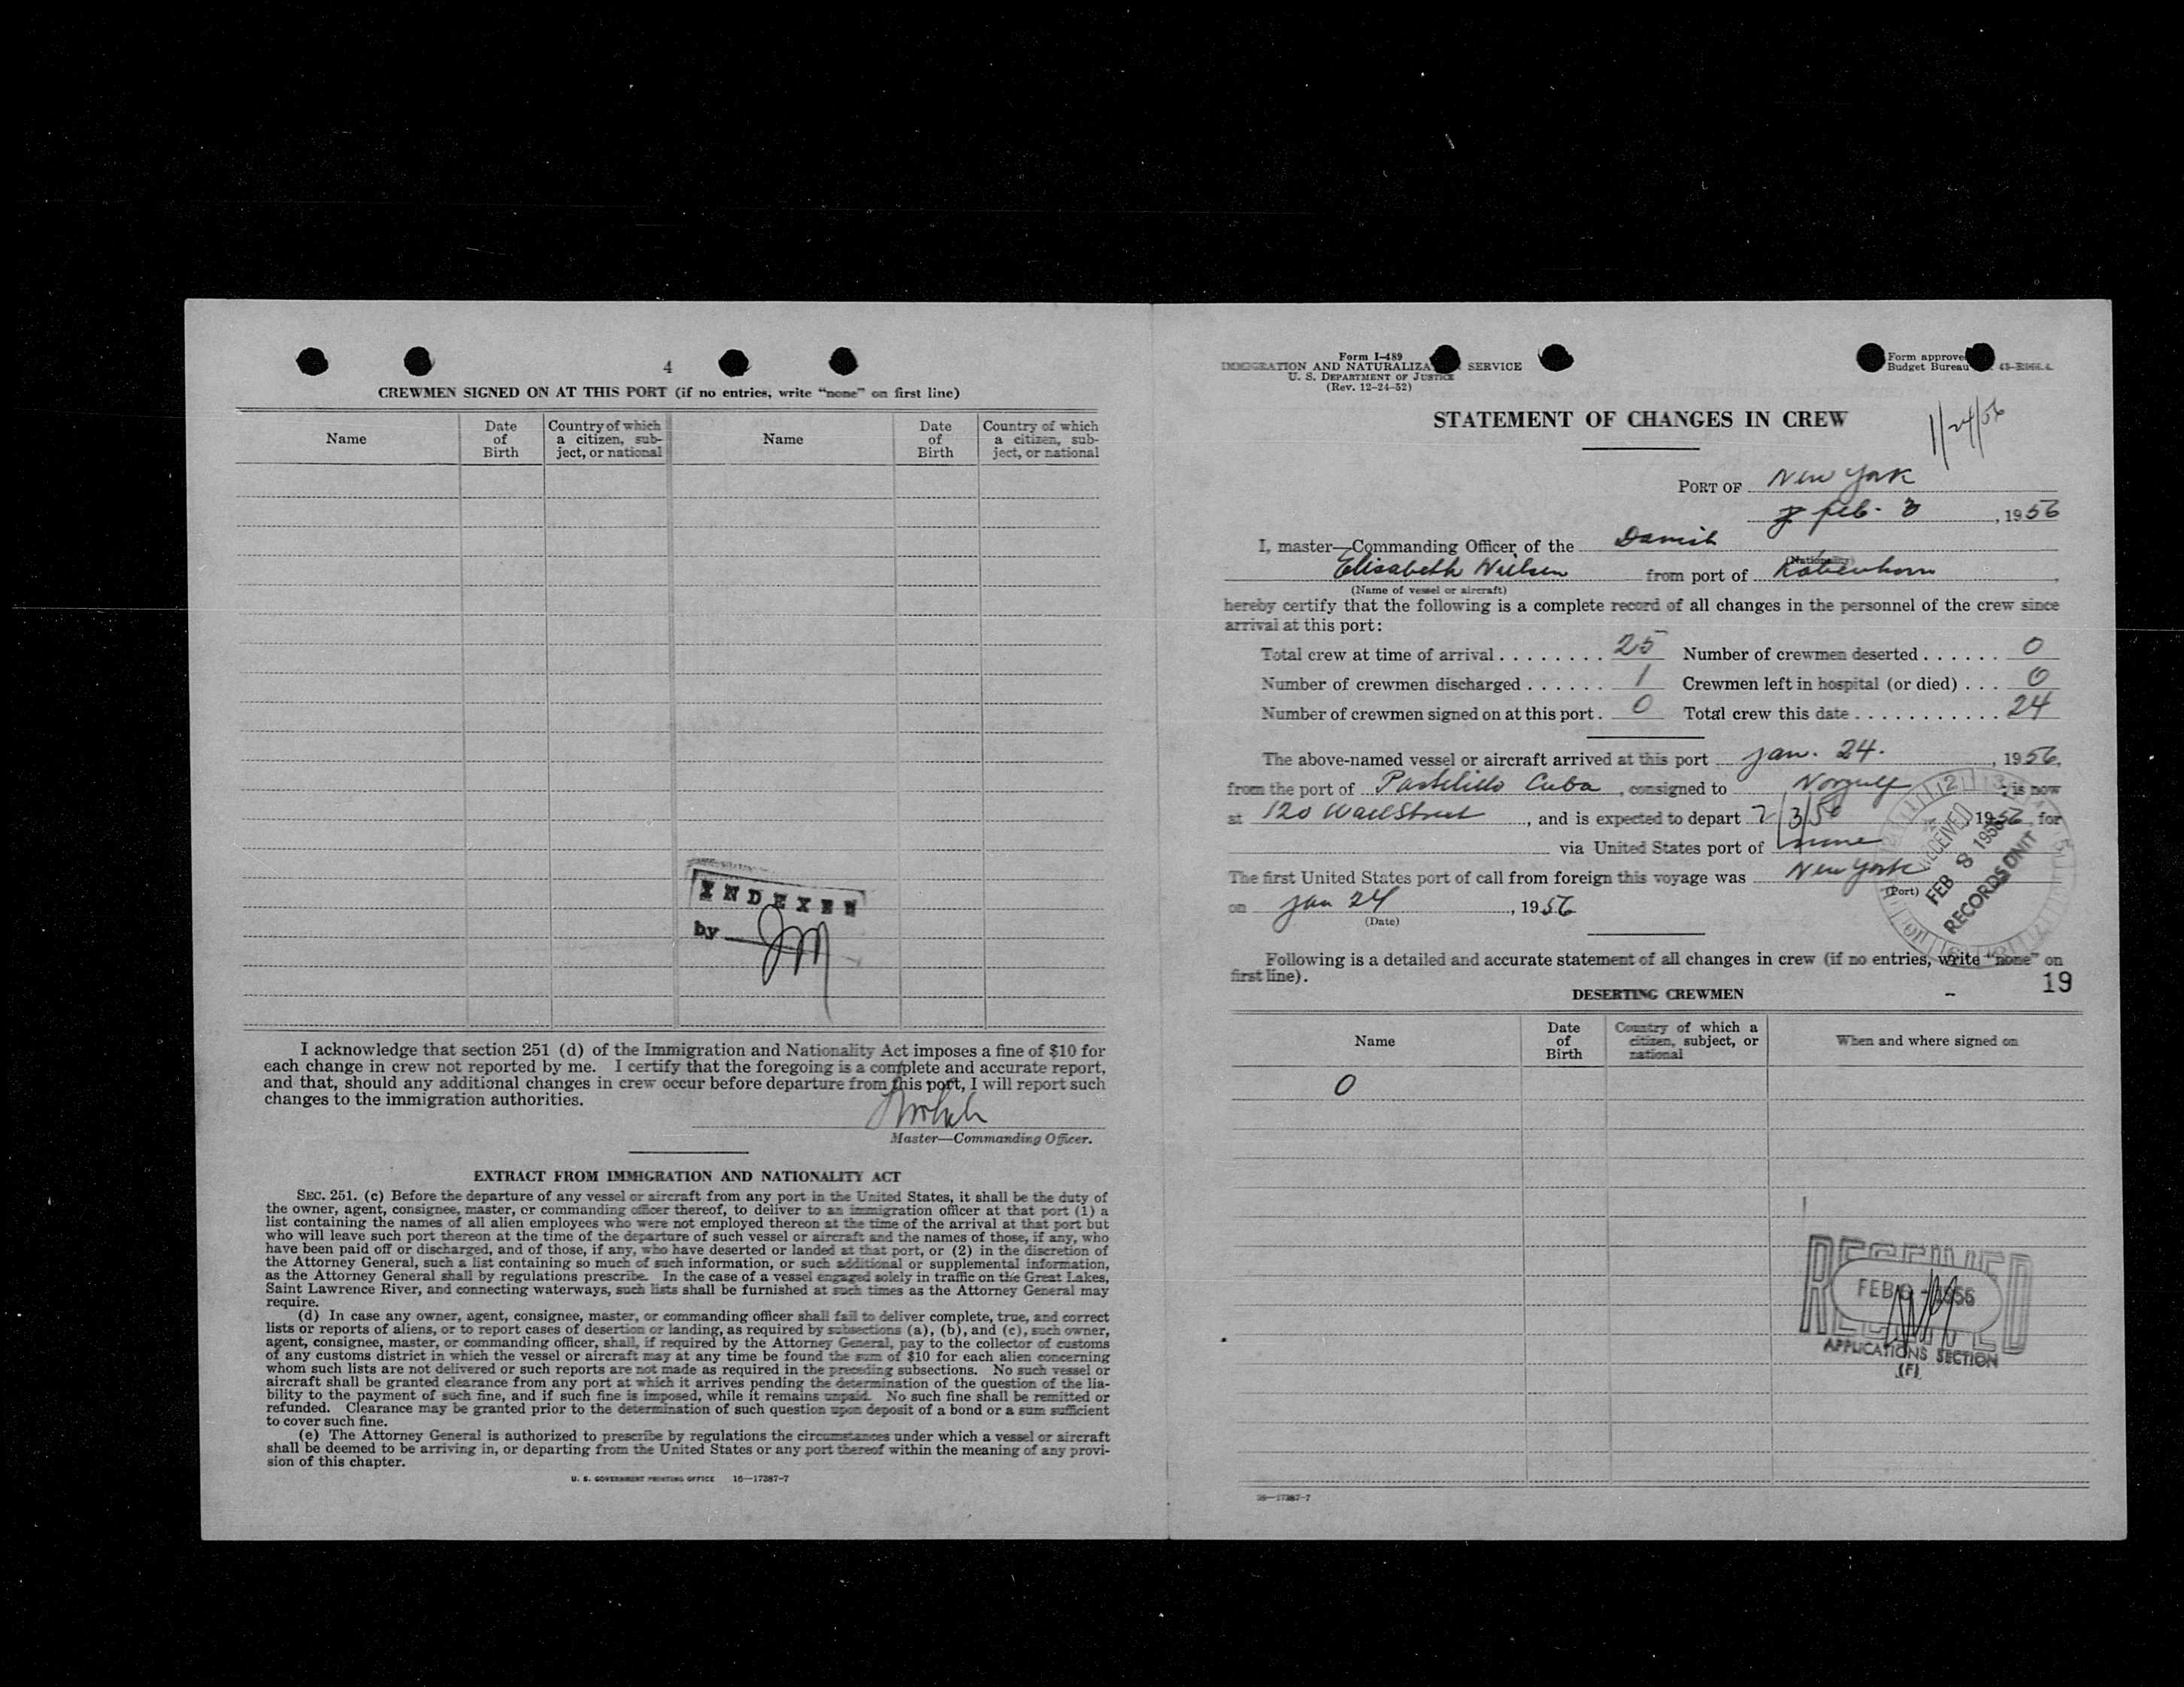 4
CREWMEN SIGNED ON AT THIS PORT (if no entries, write "none" on first line)
Name
Date of Birth
Country of which a citizen, subject, or national
Name
Date of Birth
Country of which a citizen, subject, or national
INDEXED
by JM
I acknowledge that section 251 (d) of the Immigration and Nationality Act imposes a fine of $10 for
each change in crew not reported by me. I certify that the foregoing is a complete and accurate report,
and that, should any additional changes in crew occur before departure from this port, I will report such
changes to the immigration authorities.
Master—Commanding Officer.
EXTRACT FROM IMMIGRATION AND NATIONALITY ACT
SEC. 251. (c) Before the departure of any vessel or aircraft from any port in the United States, it shall be the duty of
the owner, agent, consignee, master, or commanding officer thereof, to deliver to an immigration officer at that port (1) a
list containing the names of all alien employees who were not employed thereon at the time of the arrival at that port but
who will leave such port thereon at the time of the departure of such vessel or aircraft and the names of those, if any, who
have been paid off or discharged, and of those, if any, who have deserted or landed at that port, or (2) in the discretion of
the Attorney General, such a list containing so much of such information, or such additional or supplemental information,
as the Attorney General shall by regulations prescribe. In the case of a vessel engaged solely in traffic on the Great Lakes,
Saint Lawrence River, and connecting waterways, such lists shall be furnished at such times as the Attorney General may
require.
(d) In case any owner, agent, consignee, master, or commanding officer shall fail to deliver complete, true, and correct
lists or reports of aliens, or to report cases of desertion or landing, as required by subsections (a), (b), and (c), such owner,
agent, consignee, master, or commanding officer, shall, if required by the Attorney General, pay to the collector of customs
of any customs district in which the vessel or aircraft may at any time be found the sum of $10 for each alien concerning
whom such lists are not delivered or such reports are not made as required in the preceding subsections. No such vessel or
aircraft shall be granted clearance from any port at which it arrives pending the determination of the question of the lia-
bility to the payment of such fine, and if such fine is imposed, while it remains unpaid. No such fine shall be remitted or
refunded. Clearance may be granted prior to the determination of such question upon deposit of a bond or a sum sufficient
to cover such fine.
(e) The Attorney General is authorized to prescribe by regulations the circumstances under which a vessel or aircraft
shall be deemed to be arriving in, or departing from the United States or any port thereof within the meaning of any provi-
sion of this chapter.
U. S. GOVERNMENT PRINTING OFFICE 16—17387-7
Form I-489
IMMIGRATION AND NATURALIZA SERVICE
U. S. DEPARTMENT OF JUSTICE
(Rev. 12-24-52)
Form approve
Budget Bureau
STATEMENT OF CHANGES IN CREW
1/24/56
PORT OF New York
feb. 3, 1956
I, master—Commanding Officer of the Danish
(Nationality)
Elisabeth Nielsen from port of København
(Name of vessel or aircraft)
hereby certify that the following is a complete record of all changes in the personnel of the crew since
arrival at this port:
Total crew at time of arrival 25 Number of crewmen deserted 0
Number of crewmen discharged 1 Crewmen left in hospital (or died) 0
Number of crewmen signed on at this port 0 Total crew this date 24
The above-named vessel or aircraft arrived at this port jan. 24., 1956,
from the port of Pastelillo Cuba, consigned to Norgulf, is now
at 120 Wall Street, and is expected to depart 2/3/56 1956, for
via United States port of none
The first United States port of call from foreign this voyage was New York
(Port)
on jan 24, 1956
(Date)
RECEIVED
FEB 8 1956
RECORDS UNIT
Following is a detailed and accurate statement of all changes in crew (if no entries, write "none" on
first line).
19
DESERTING CREWMEN
Name
Date of Birth
Country of which a citizen, subject, or national
When and where signed on
0
RECEIVED
FEB 6 - 1956
APPLICATIONS SECTION
(F)
16—17387-7